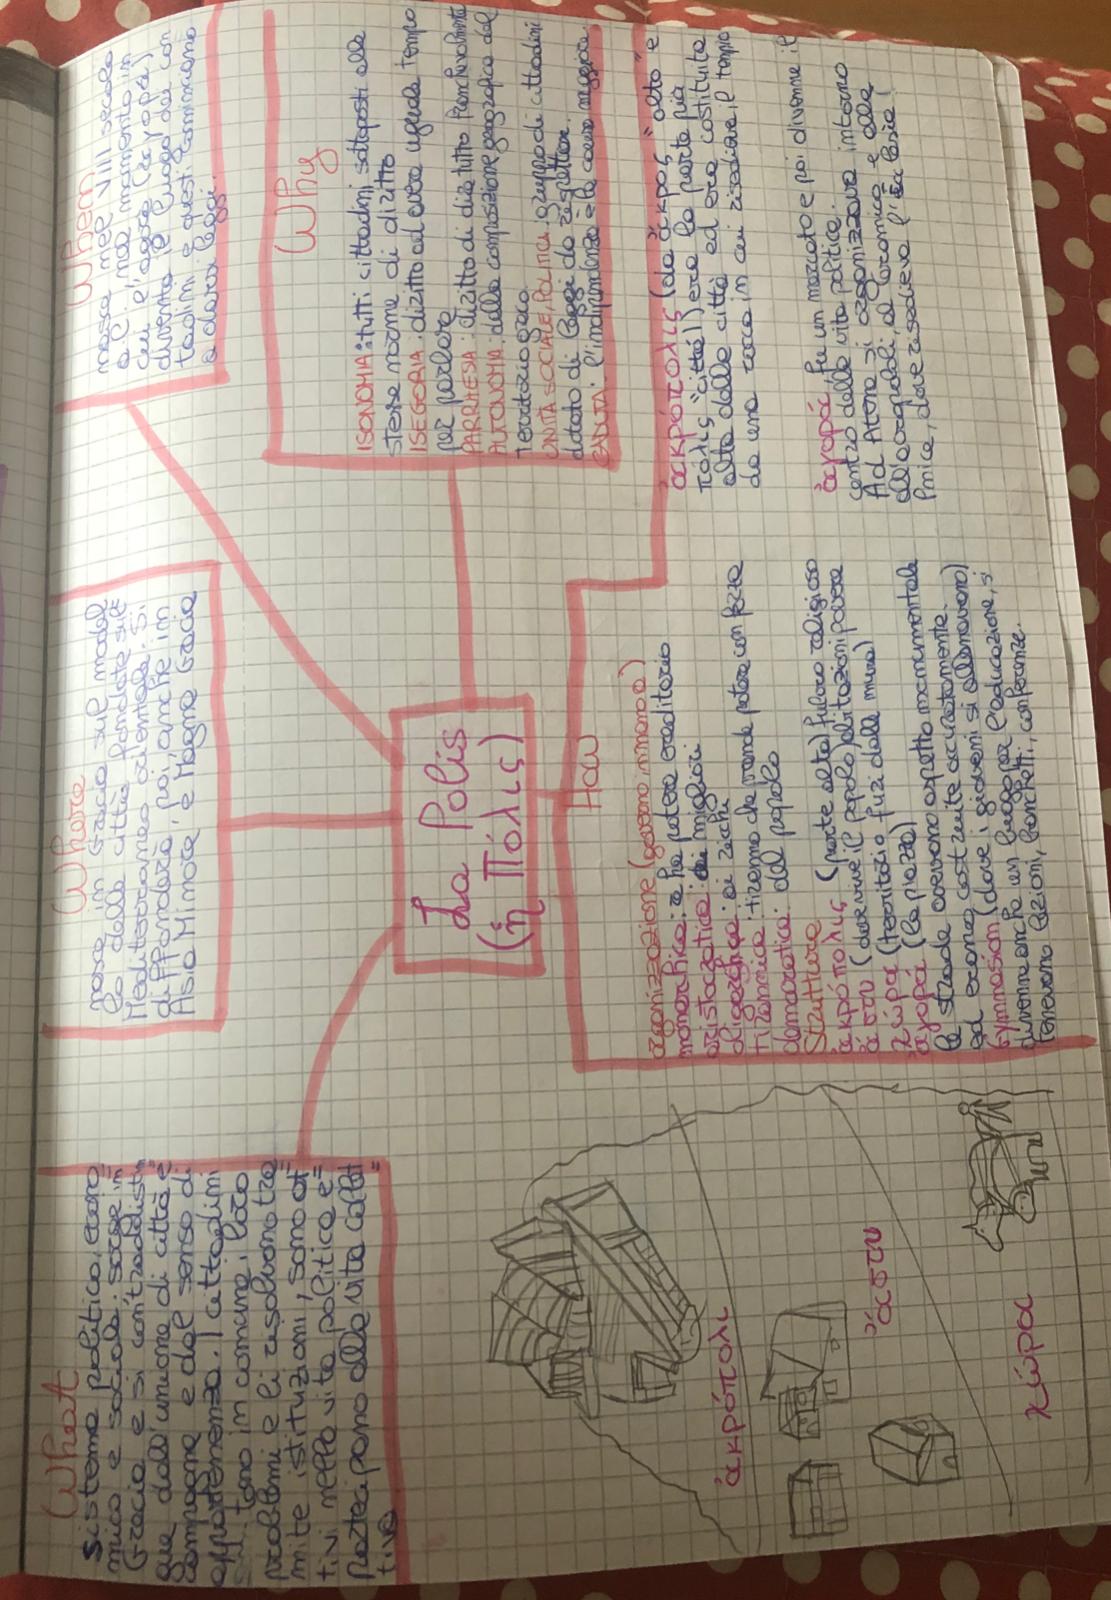 What
sistema politico, econo
mico e sociale: sorge in
Grecia e si contraddistin=
gue dall'unione di città e
campagna e del senso di
appartenenza. I cittadini
tono in comune i loro
problemi e li risolvono tra=
mite istituzioni, sono at=
tivi nella vita politica e
partecipano alla vita collet=
tiva
Where
nasce in Grecia sul model
lo delle città fondate sul
Mediterraneo orientale. Si
diffonderà, poi, anche in
Asia Minore e Magna Grecia
When
nasce nel VIII secolo
a.C., nel momento in
cui l'agorà (ἀγορά)
diventa il luogo dei cit
tadini e questi cominciano
a darsi leggi.
La Polis
(ἡ Πόλις)
Why
ISONOMIA: tutti i cittadini sottoposti alle
stesse norme di diritto
ISEGORIA: diritto ad avere uguale tempo
per parlare
PARRHESIA: diritto di dire tutto francamente
AUTONOMIA: dalla composizione geografica del
territorio greco
UNITÀ SOCIALE, POLITICA: gruppo di cittadini
dotato di leggi da rispettare.
CADUTA: l'indipendenza è la causa maggiore.
How
organizzazione (governo minore)
monarchica: re ha potere ereditario
aristocratica: dei migliori
oligarchica: ai ricchi
tirannica: tiranno che prende potere con forza
democratica: del popolo
Struttura
ἀκρόπολις (parte alta) fulcro religioso
ἄστυ (dove vive il popolo) abitazioni povere
χώρα (territorio fuzi dalle mura)
ἀγορά (la piazza)
le strade avevano aspetto monumentale
ed erano costruite accuratamente.
Gymnasion (dove i giovani si allenavano)
divenne anche un luogo per l'educazione, si
tenevano lezioni, banchetti, conferenze.
ἀκρόπολις (da ἄκρος "alto" e
πόλις "città"), era la parte più
alta delle città ed era costituita
da una rocca in cui risiedeva il tempio
ἀγορά, fu un mercato e poi divenne il
centro della vita politica.
Ad Atene si organizzava intorno
all'acropoli, al Ceramico e alla
Pnice, dove risiedeva l'ἐκκλησία!
ἀκρόπολι
ἄστυ
χώρα